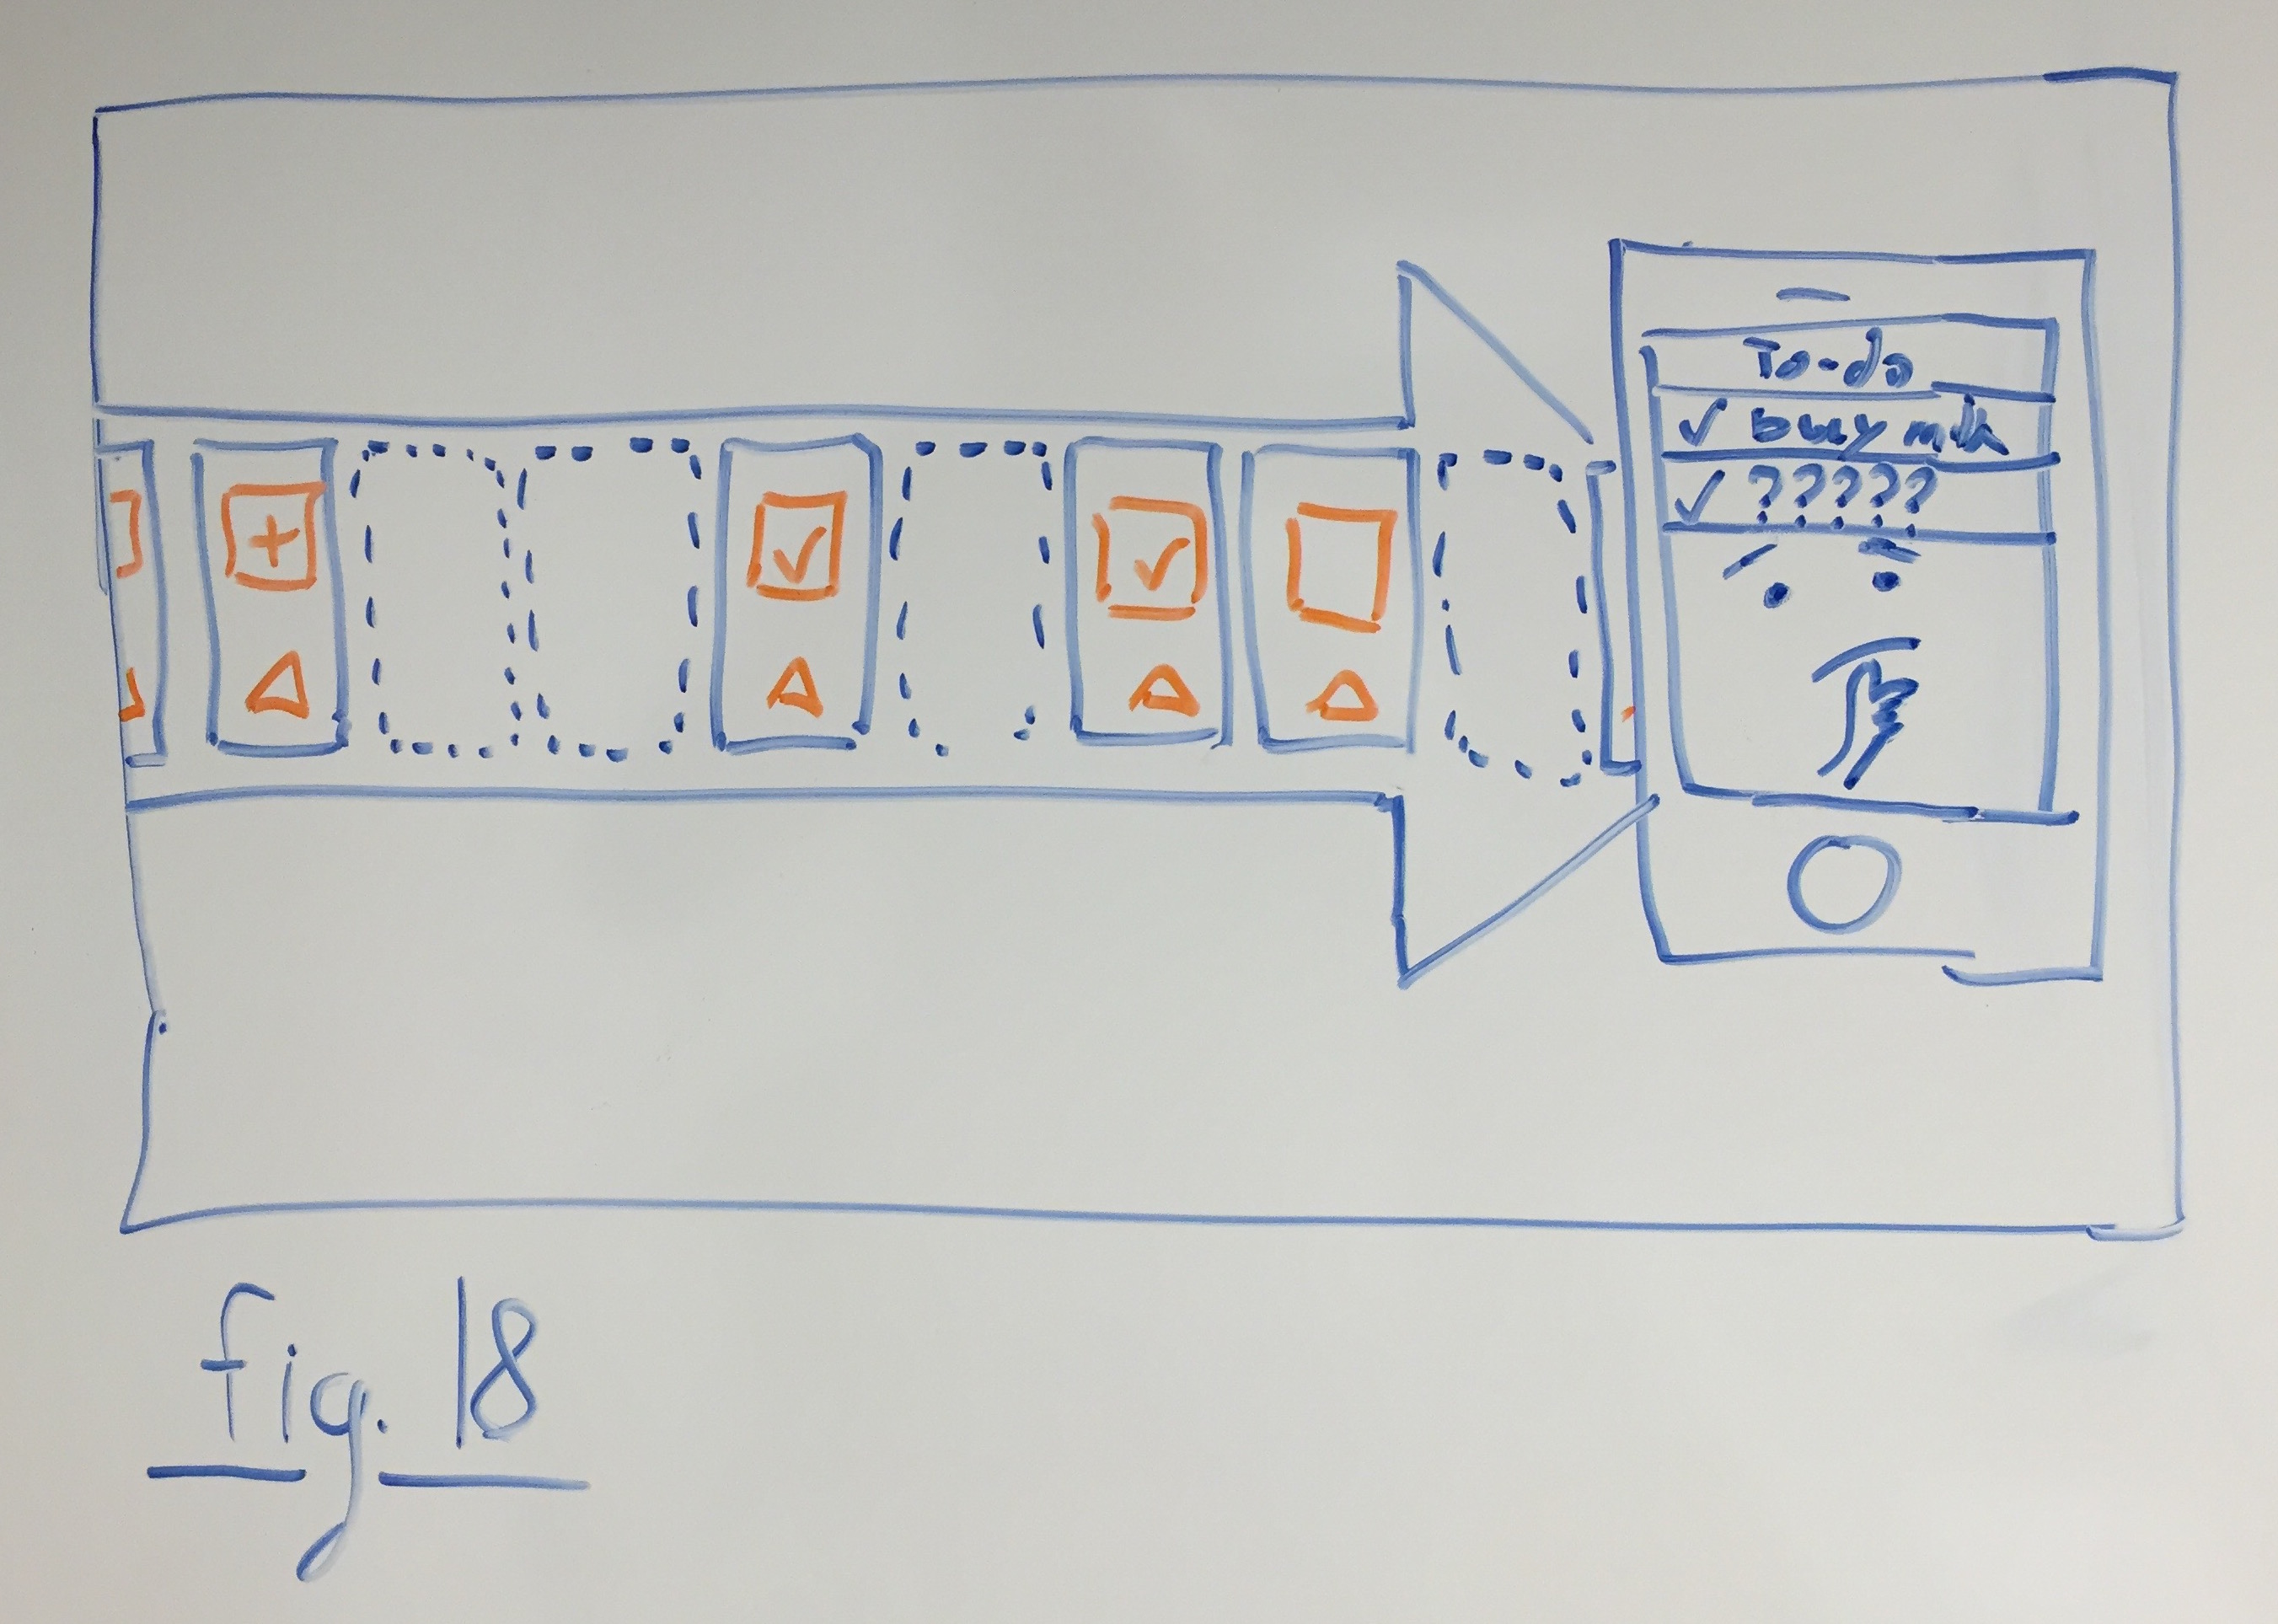 To-do
✓ buy milk
✓ ?????
fig. 18